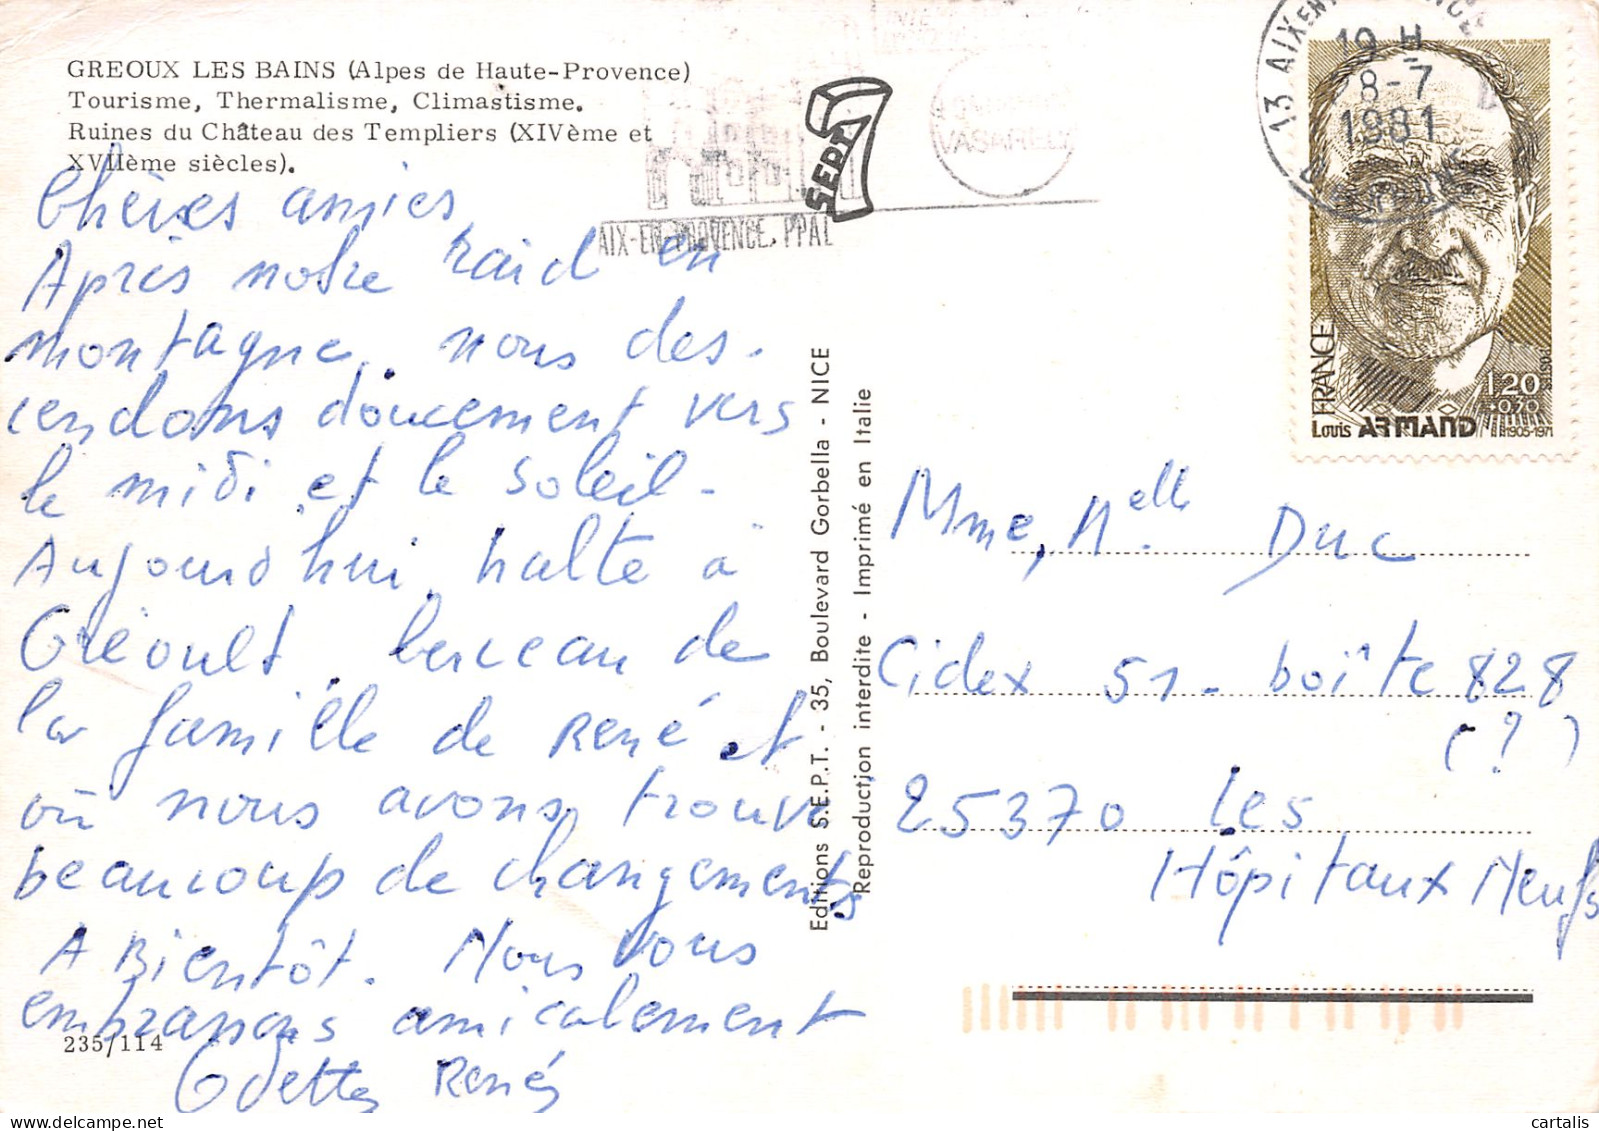 GREOUX LES BAINS (Alpes de Haute-Provence)
Tourisme, Thermalisme, Climastisme.
Ruines du Château des Templiers (XIVème et
XVIIème siècles).
Chères amies
Après notre raid en
montagne, nous des-
cendons doucement vers
le midi et le soleil -
Aujourd'hui halte à
Gréoult, berceau de
la famille de René et
où nous avons trouvé
beaucoup de changements
A Bientôt. Nous vous
embrassons amicalement
Odette René
235/114
Editions S.E.P.T. - 35, Boulevard Gorbella - NICE
Reproduction interdite - Imprimé en Italie
SEPT
AIX-EN-PROVENCE, PPAL
VASARELY
13 AIX EN PROVENCE
19 H
8-7
1981
FRANCE
1,20
+0,30
POSTES
Louis ARMAND 1905-1971
Mme, Melle Duc
Cidex 51 - boîte 828
(?)
25370 Les
Hôpitaux Neufs
cartalis